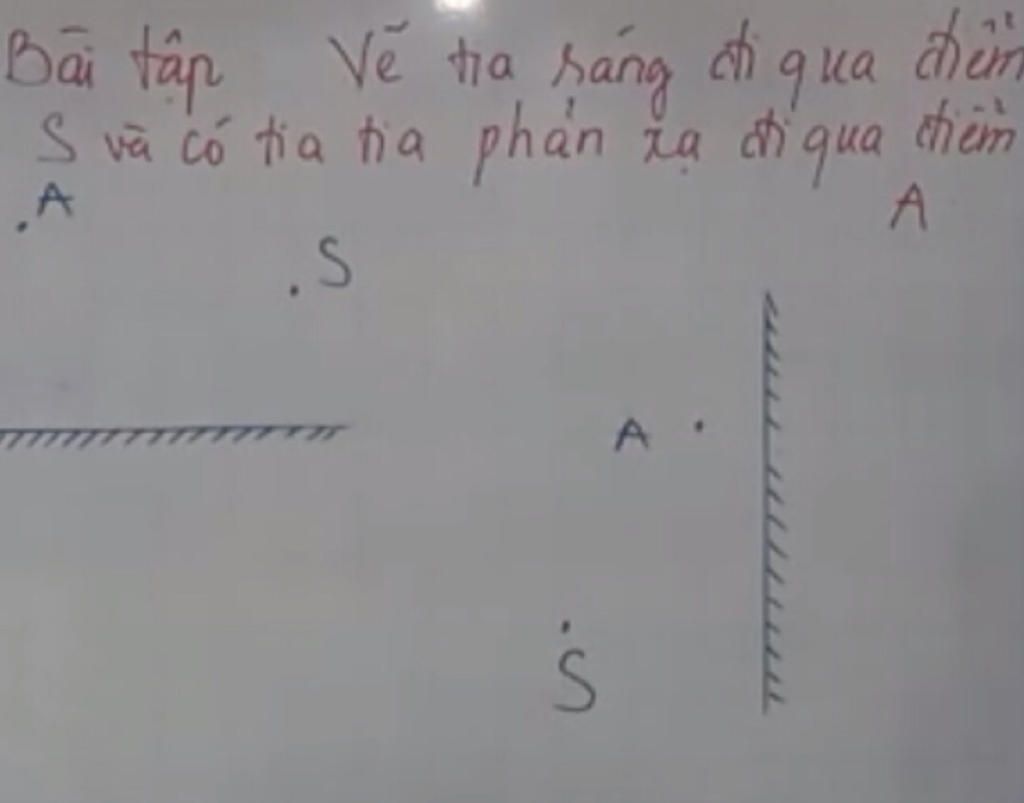 Bài tập Vẽ tia sáng đi qua điểm
S và có tia tia phản xạ đi qua điểm
A
A
S
A
S